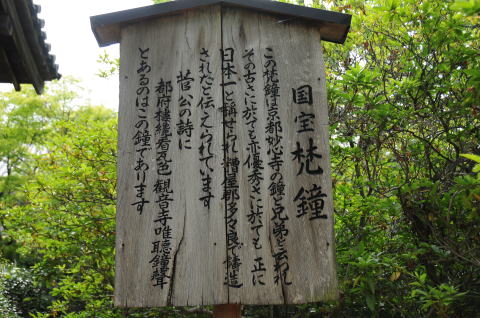 国宝梵鐘
この梵鐘は京都妙心寺の鐘と兄弟と云われ
その古さに於ても亦優秀さに於ても正に
日本一と称せられ糟屋郡多々良で鋳造
されたと伝えられています
菅公の詩に
都府楼纔看瓦色観音寺唯聴鐘聲
とあるのはこの鐘であります